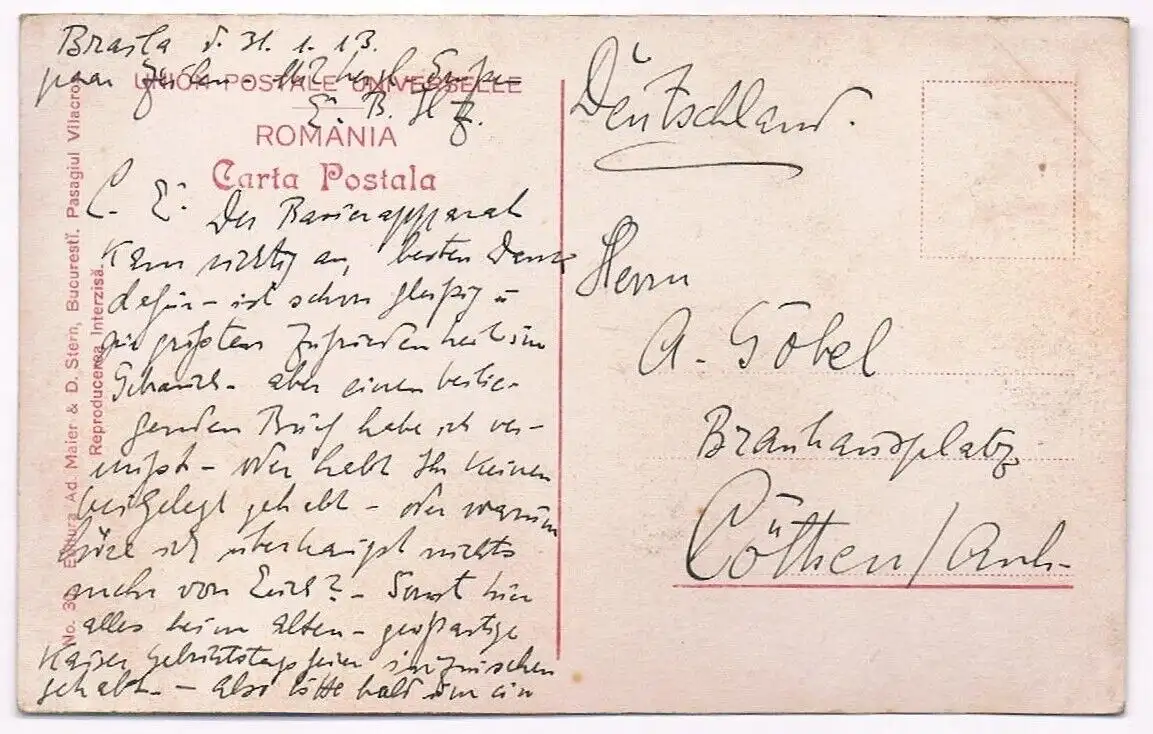 Braila d. 31. 1. 13.
UNION POSTALE UNIVERSELLE
E. B. H
ROMANIA
Carta Postala
L. E. Der Rasierapparat
kam richtig an, besten Dank
dafür – ist schon fleißig u
zur größten Zufriedenheit im
Gebrauch – aber einen beilie-
genden Brief habe ich ver-
mißt – oder habt Ihr keinen
beigelegt gehabt – oder warum
höre ich überhaupt nichts
mehr von Euch? – Sonst hier
alles beim Alten – großartige
Kaiser Geburtstagsfeier inzwischen
gehabt. – Also bitte bald um ein
Deutschland.
Herrn
A. Göbel
Brauhausplatz
Cöthen / Anh.
No. 30. Editura Ad. Maier & D. Stern, Bucurestĭ. Pasagiul Vilacros
Reproducerea Interzisă.